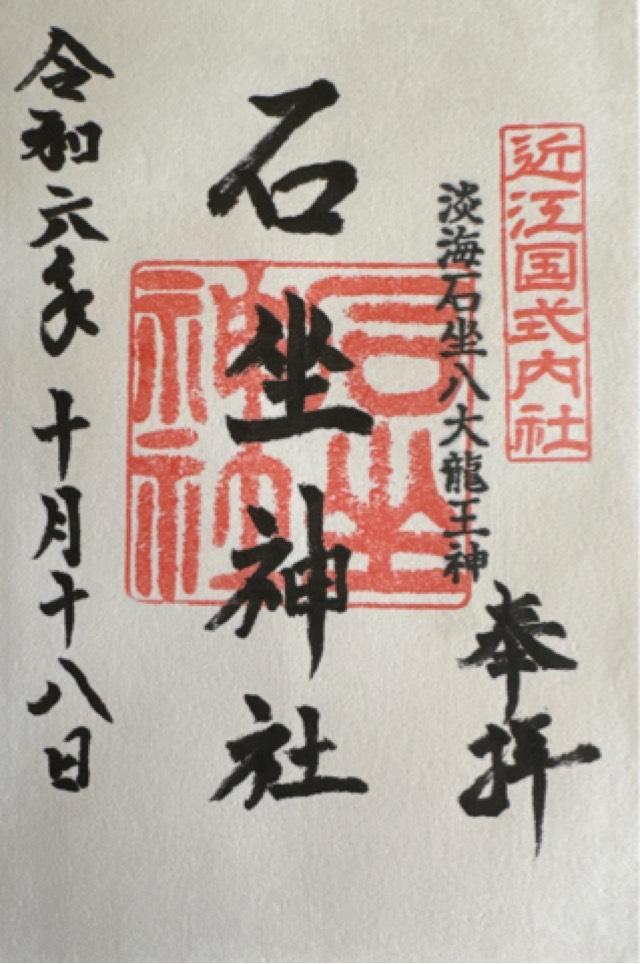 近江国式内社
奉拝
淡海石坐八大龍王神
石坐神社
石坐
神社
令和六年十月十八日